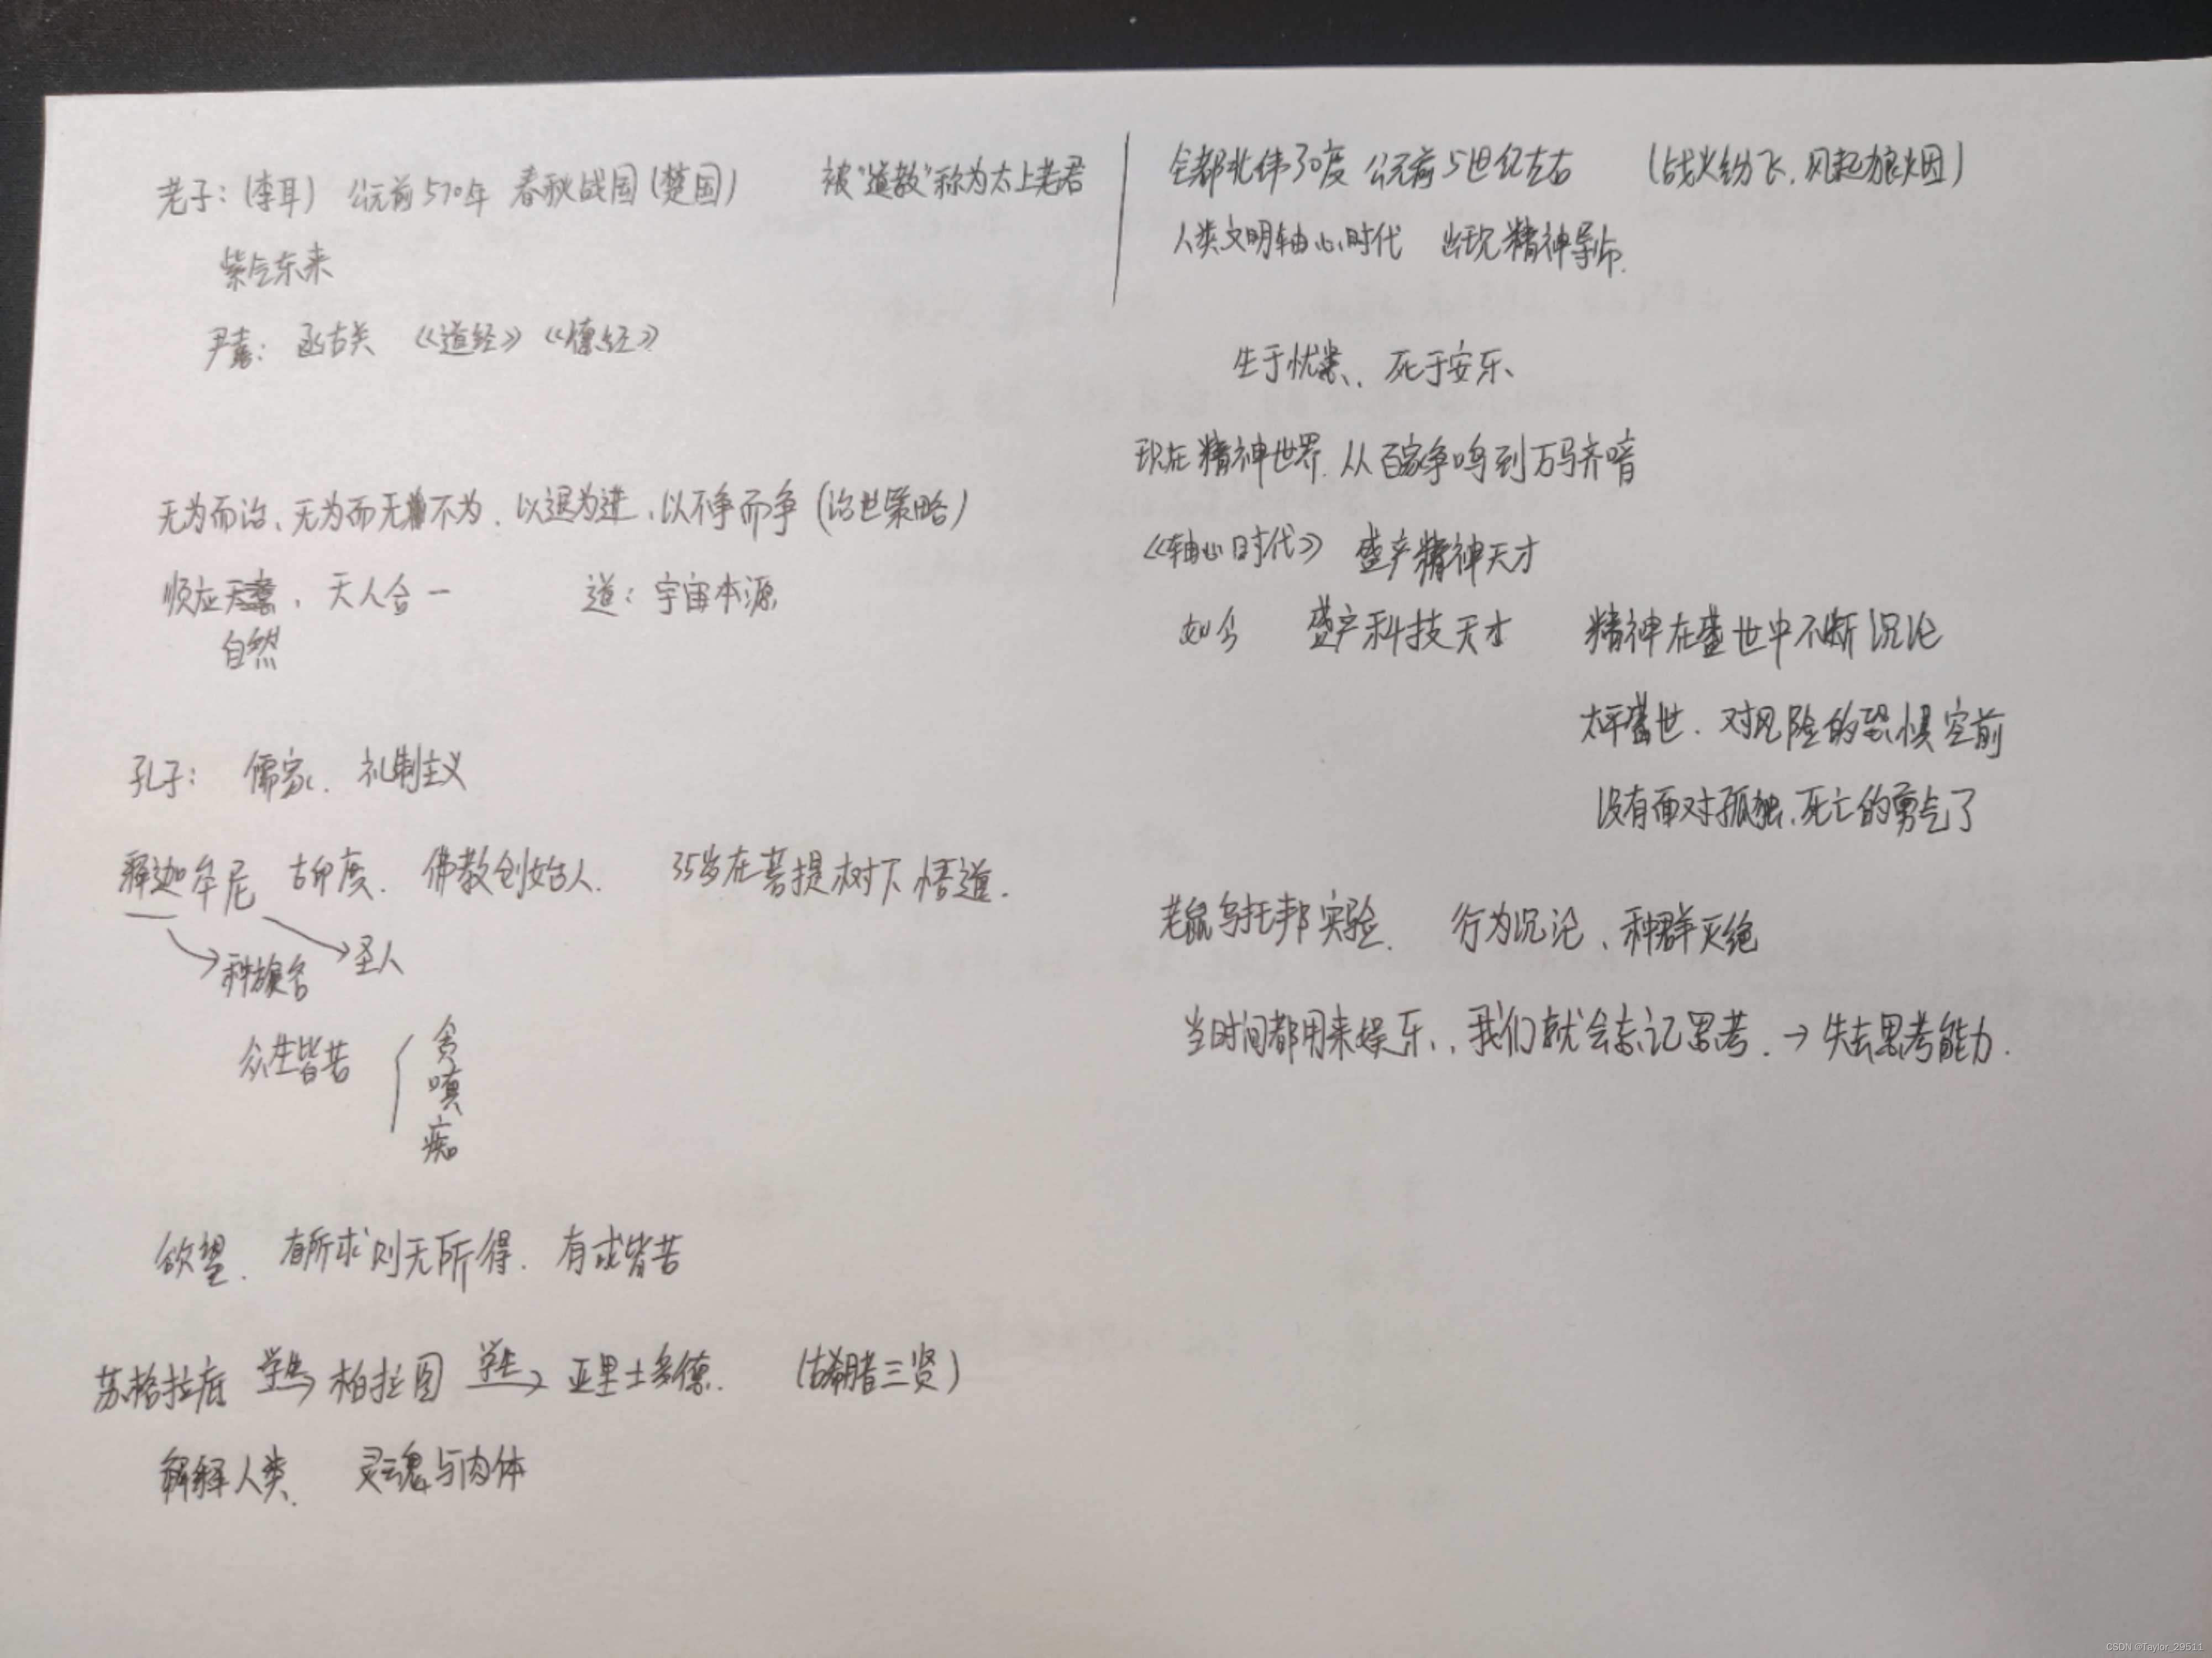 老子：(李耳) 公元前570年 春秋战国(楚国) 被"道教"称为太上老君
紫气东来
尹喜： 函古关 《道经》《德经》
无为而治、无为而无不为、以退为进、以不争而争(治世策略)
顺应 、天人合一 道：宇宙本源
自然
孔子： 儒家、礼制主义
释迦牟尼 古印度. 佛教创始人. 35岁在菩提树下悟道.
种族名 圣人
众生皆苦
贪
嗔
痴
欲望. 有所求则无所得. 有求皆苦
苏格拉底 学生 柏拉图 学生 亚里士多德. (古希腊三贤)
解释人类. 灵魂与肉体
全都北纬30度 公元前5世纪左右 (战火纷飞.风起狼烟)
人类文明轴心时代 出现精神导师.
生于忧患、死于安乐、
现在精神世界.从百家争鸣到万马齐喑
《轴心时代》 盛产精神天才
如今 盛产科技天才 精神在盛世中不断沉沦
太平盛世.对风险的恐惧空前
没有面对孤独.死亡的勇气了
老鼠乌托邦实验. 行为沉沦、种群灭绝
当时间都用来娱乐,我们就会忘记思考.→失去思考能力.
CSDN @Taylor_29511